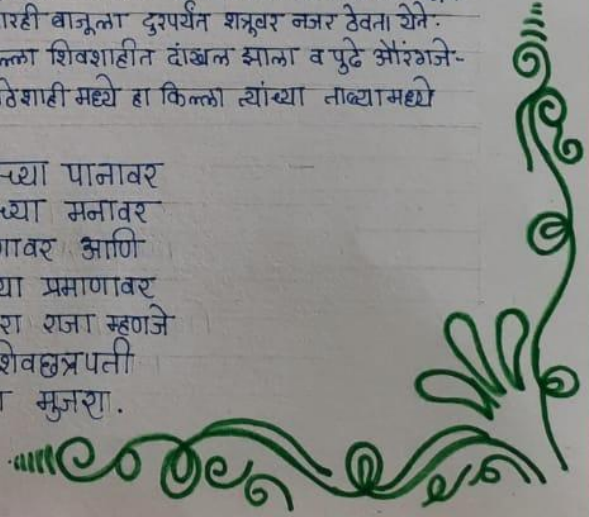 ारही बाजूला दुरपर्यंत शत्रूवर नजर ठेवता येते.
ल्ला शिवशाहीत दाखल झाला व पुढे औरंगजे-
ठेशाही मध्ये हा किल्ला त्यांच्या ताब्यामध्ये
च्या पानावर
च्या मनावर
ावर आणि
या प्रमाणावर
रा राजा म्हणजे
शिवछत्रपती
मुजरा.